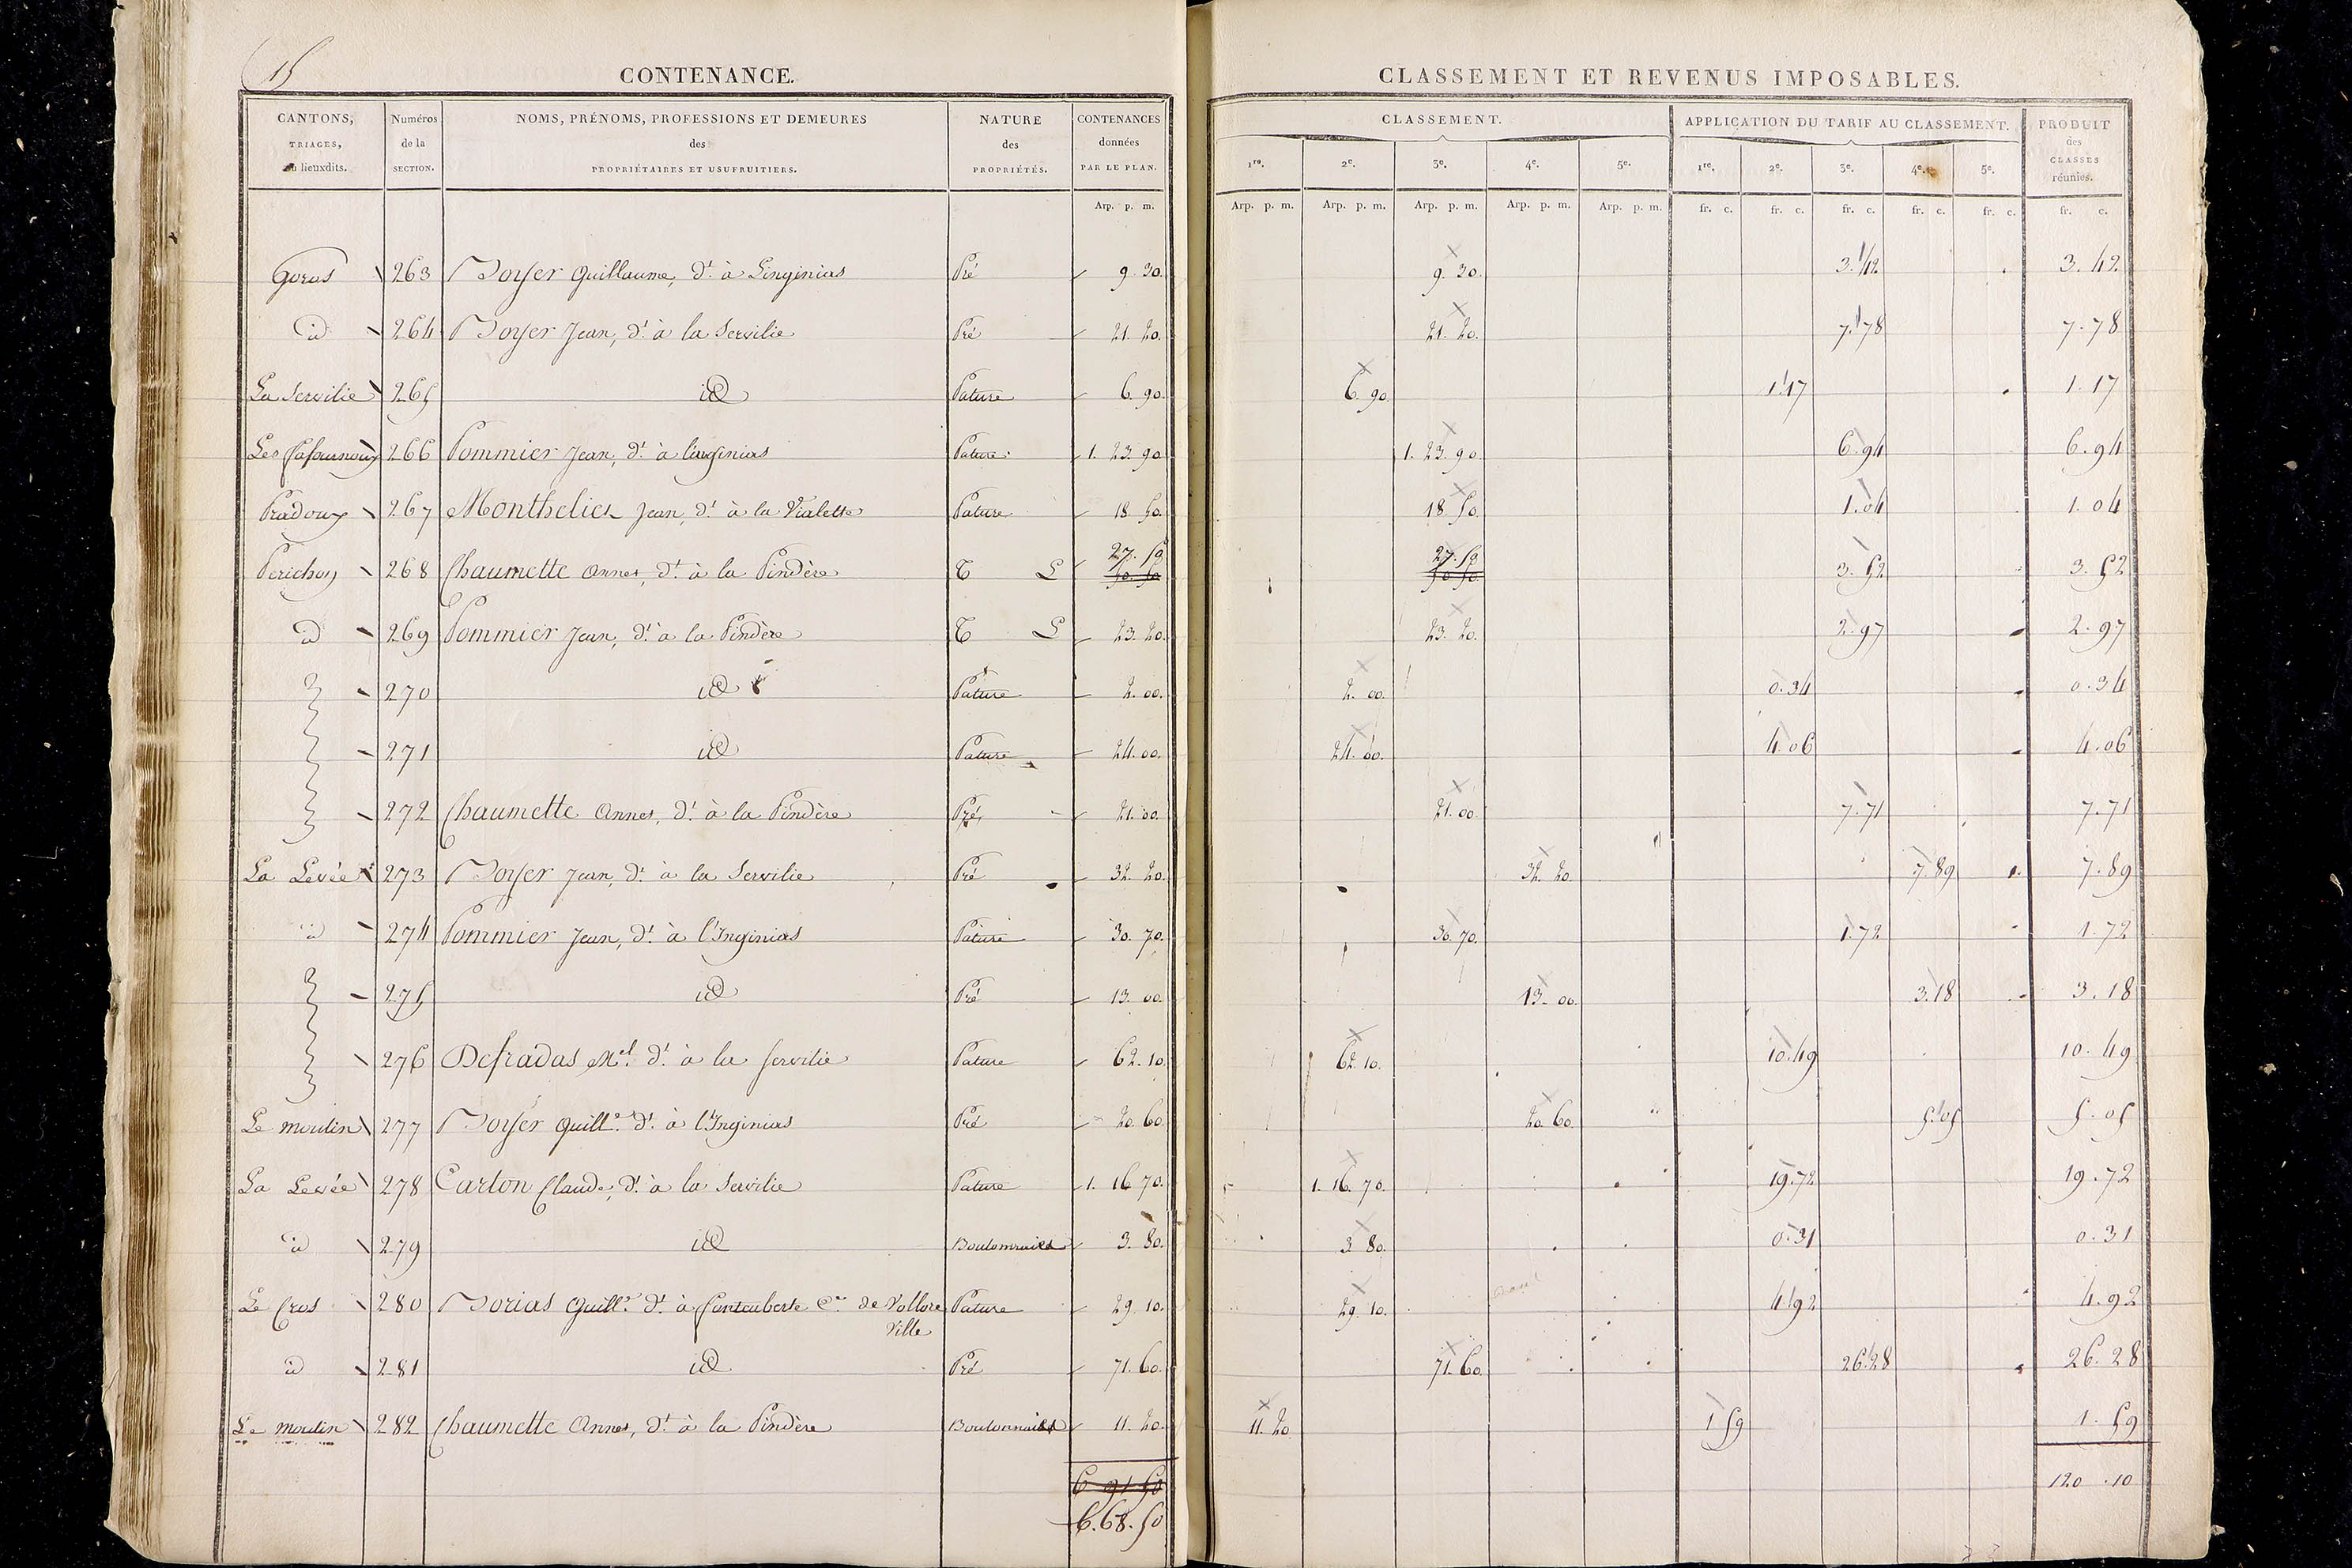 15
CONTENANCE.
CANTONS, TRIAGES, ou lieuxdits. | Numéros de la SECTION. | NOMS, PRÉNOMS, PROFESSIONS ET DEMEURES des PROPRIÉTAIRES ET USUFRUITIERS. | NATURE des PROPRIÉTÉS. | CONTENANCES données PAR LE PLAN.
Arp. p. m.
CLASSEMENT ET REVENUS IMPOSABLES.
CLASSEMENT. | APPLICATION DU TARIF AU CLASSEMENT. | PRODUIT des CLASSES réunies.
1re. | 2e. | 3e. | 4e. | 5e. | 1re. | 2e. | 3e. | 4e. | 5e.
Arp. p. m. | Arp. p. m. | Arp. p. m. | Arp. p. m. | Arp. p. m. | fr. c. | fr. c. | fr. c. | fr. c. | fr. c. | fr. c.
Goras 263 Doyer Guillaume, dt. à Linginias Pré 9. 30. 9. 30. 3. 42 3. 42
id 264 Doyer Jean, dt. à la Servilie Pré 21. 20. 21. 20. 7. 78 7. 78
La Servilie 265 id Pature 6. 90. 6. 90. 1. 17 1. 17
Les 266 Pommier Jean, dt. à linginias Pature 1. 23. 90 1. 23. 90. 6. 94 6. 94
Pradoux 267 Monthelier Jean, dt. à la Vialette Pature 18. 50. 18. 50. 1. 04 1. 04
Perichon 268 Chaumette Annet, dt. à la Pindère T L 27. 50 50. 50 27. 50 50. 50 3. 52 3. 52
id 269 Pommier Jean, dt. à la Pindère T L 23. 20. 23. 20. 2. 97 2. 97
270 id Pature 2. 00. 2. 00. 0. 34 0. 34
271 id Pature 24. 00. 24. 00. 4. 06 4. 06
272 Chaumette Annet, dt. à la Pindère Pré 21. 00. 21. 00. 7. 71 7. 71
La Levée 273 Doyer Jean, dt. à la Servilie Pré 32. 20. 32. 20. 7. 89 7. 89
id 274 Pommier Jean, dt. à l'Inginias Pature 30. 70. 30. 70. 1. 72 1. 72
275 id Pré 13. 00. 13. 00. 3. 18 3. 18
276 Defradas Mel. dt. à la servilie Pature 62. 10. 62. 10. 10. 49 10. 49
Le moulin 277 Doyer Guille. dt. à l'Inginias Pré 20. 60. 20. 60. 5. 05 5. 05
La Levée 278 Carton Claude, dt. à la Servilie Pature 1. 16 70. 1. 16. 70. 19. 72 19. 72
id 279 id 3. 80. 3. 80. 0. 31 0. 31
Le Cros 280 Dorias Guille. dt. à Cne de Vollore Pature 29. 10. 29. 10. 4. 92 4. 92
Ville
id 281 id Pré 71. 60. 71. 60. 26. 28 26. 28
Le moulin 282 Chaumette Annet, dt. à la Pindère 11. 20. 11. 20. 1 59 1. 59
6 91 50 120. 10
6. 68. 50